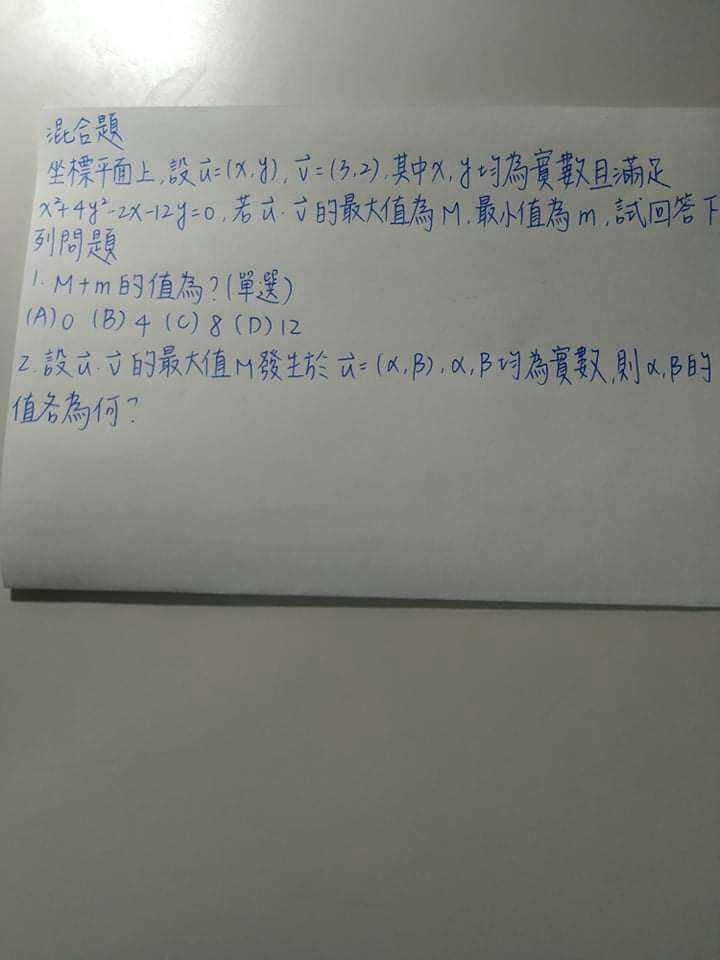 混合題
坐標平面上,設u⃗=(x,y), v⃗=(3,2),其中x, y均為實數且滿足
x²+4y²-2x-12y=0,若u⃗·v⃗的最大值為M,最小值為m,試回答下
列問題
1. M+m的值為?(單選)
(A)0 (B) 4 (C) 8 (D)12
2.設u⃗·v⃗的最大值M發生於u⃗=(α,β),α,β均為實數,則α,β的
值各為何?